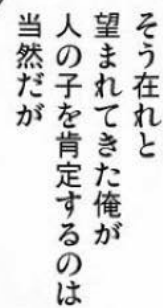 そう在れと
望まれてきた俺が
人の子を肯定するのは
当然だが